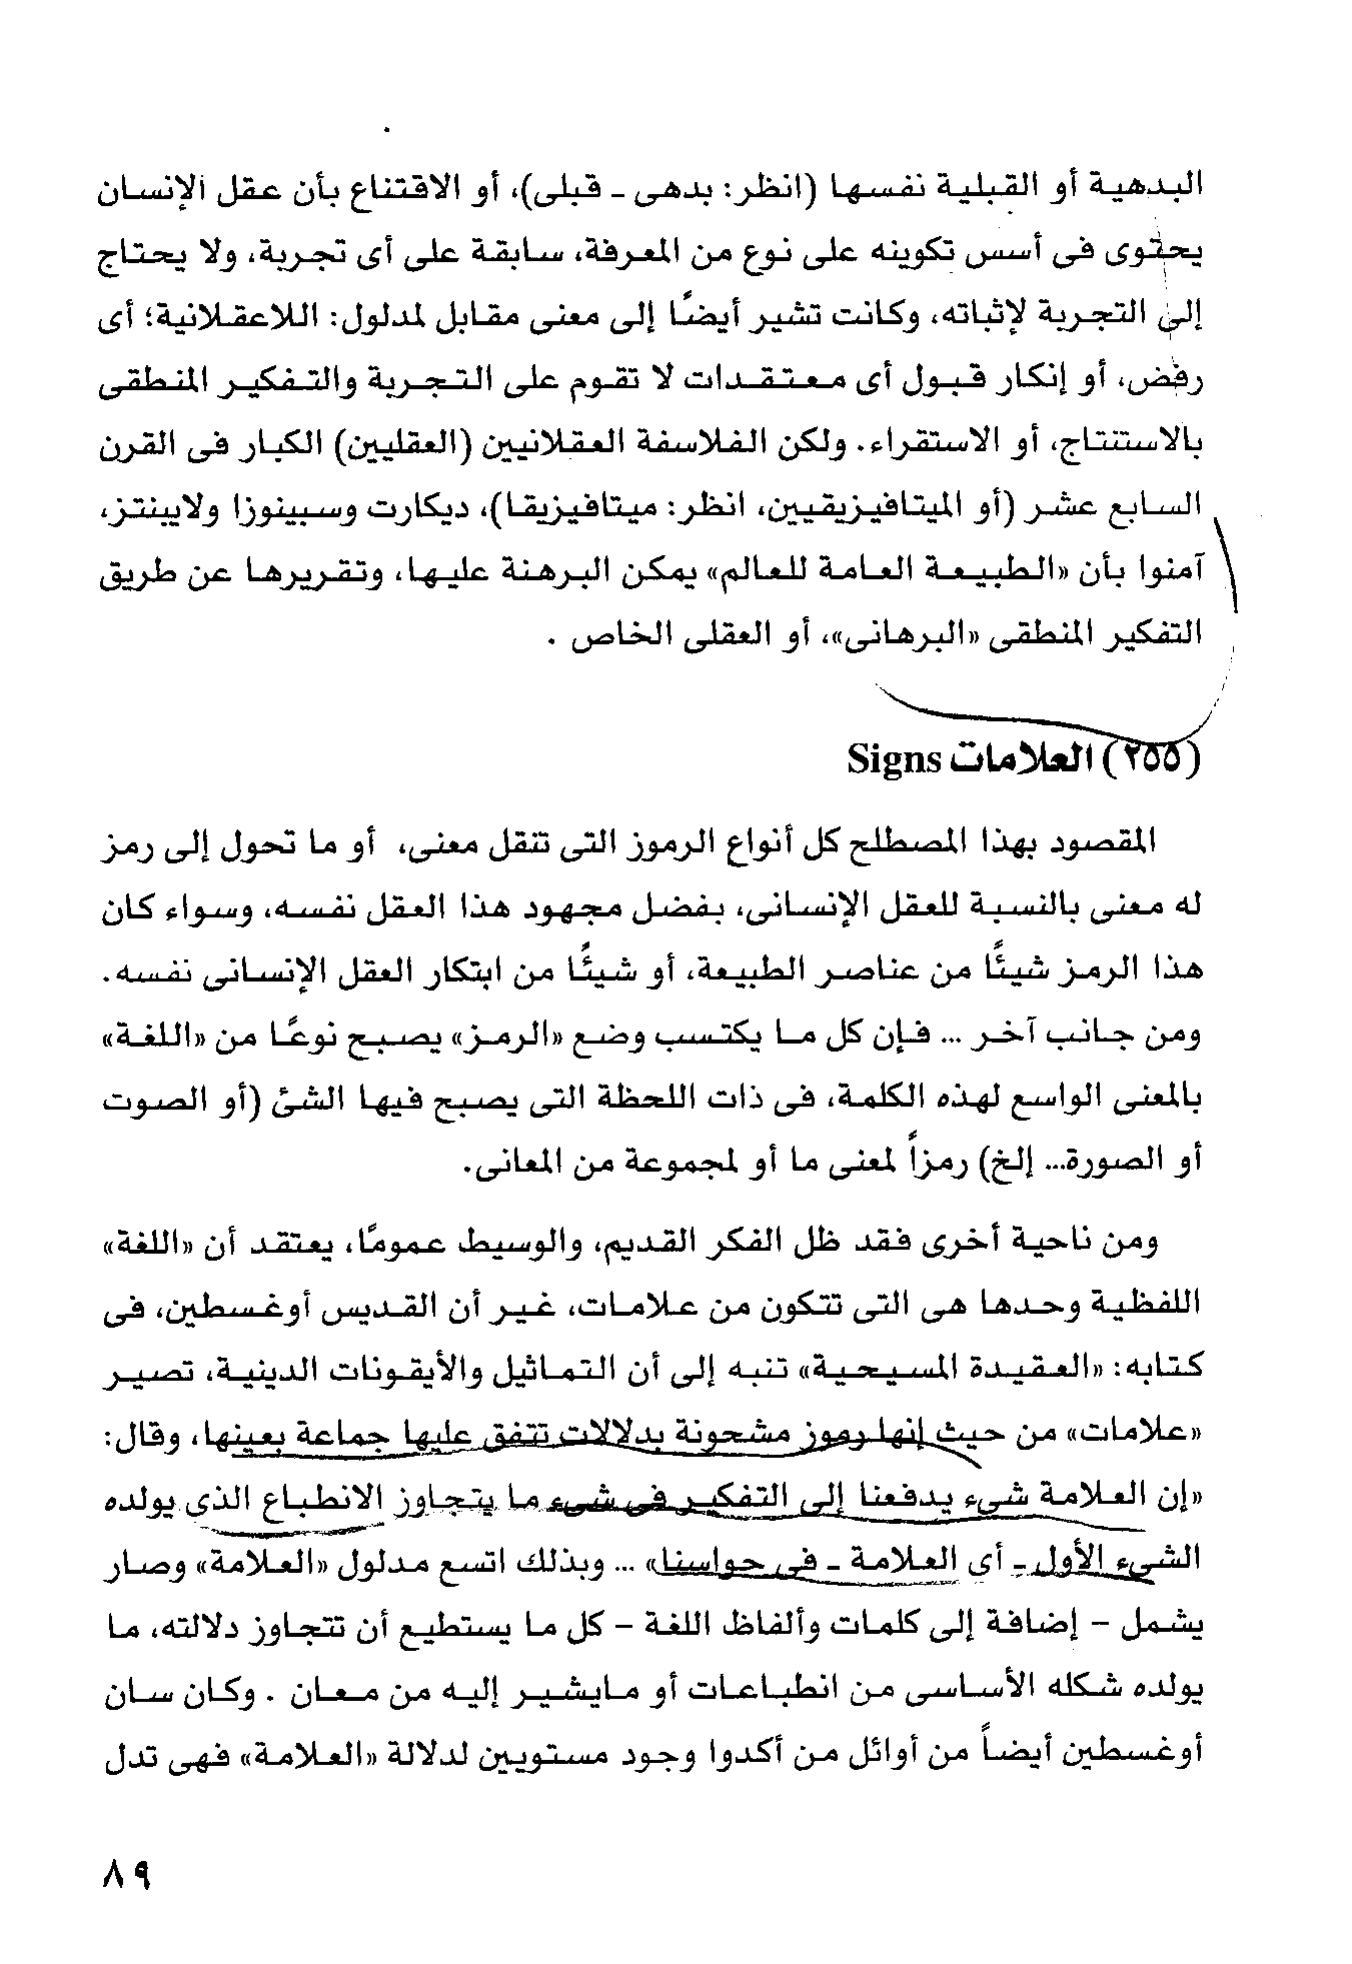 البدهية أو القبلية نفسها (انظر: بدهى - قبلى)، أو الاقتناع بأن عقل الإنسان
يحتوى فى أسس تكوينه على نوع من المعرفة، سابقة على أى تجربة، ولا يحتاج
إلى التجربة لإثباته، وكانت تشير أيضًا إلى معنى مقابل لمدلول: اللاعقلانية؛ أى
رفض، أو إنكار قبول أى معتقدات لا تقوم على التجربة والتفكير المنطقى
بالاستنتاج، أو الاستقراء. ولكن الفلاسفة العقلانيين (العقليين) الكبار فى القرن
السابع عشر (أو الميتافيزيقيين، انظر: ميتافيزيقا)، ديكارت وسبينوزا ولايبنتز،
آمنوا بأن «الطبيعة العامة للعالم» يمكن البرهنة عليها، وتقريرها عن طريق
التفكير المنطقى «البرهانى»، أو العقلى الخاص .
(٢٥٥) العلامات Signs
المقصود بهذا المصطلح كل أنواع الرموز التى تنقل معنى، أو ما تحول إلى رمز
له معنى بالنسبة للعقل الإنسانى، بفضل مجهود هذا العقل نفسه، وسواء كان
هذا الرمز شيئًا من عناصر الطبيعة، أو شيئًا من ابتكار العقل الإنسانى نفسه.
ومن جانب آخر ... فإن كل ما يكتسب وضع «الرمز» يصبح نوعًا من «اللغة»
بالمعنى الواسع لهذه الكلمة، فى ذات اللحظة التى يصبح فيها الشئ (أو الصوت
أو الصورة... إلخ) رمزاً لمعنى ما أو لمجموعة من المعانى.
ومن ناحية أخرى فقد ظل الفكر القديم، والوسيط عمومًا، يعتقد أن «اللغة»
اللفظية وحدها هى التى تتكون من علامات، غير أن القديس أوغسطين، فى
كتابه: «العقيدة المسيحية» تنبه إلى أن التماثيل والأيقونات الدينية، تصير
«علامات» من حيث إنها رموز مشحونة بدلالات تتفق عليها جماعة بعينها، وقال:
«إن العلامة شىء يدفعنا إلى التفكير فى شىء ما يتجاوز الانطباع الذى يولده
الشىء الأول - أى العلامة - فى حواسنا» ... وبذلك اتسع مدلول «العلامة» وصار
يشمل - إضافة إلى كلمات وألفاظ اللغة - كل ما يستطيع أن تتجاوز دلالته، ما
يولده شكله الأساسى من انطباعات أو مايشير إليه من معان . وكان سان
أوغسطين أيضاً من أوائل من أكدوا وجود مستويين لدلالة «العلامة» فهى تدل
٨٩